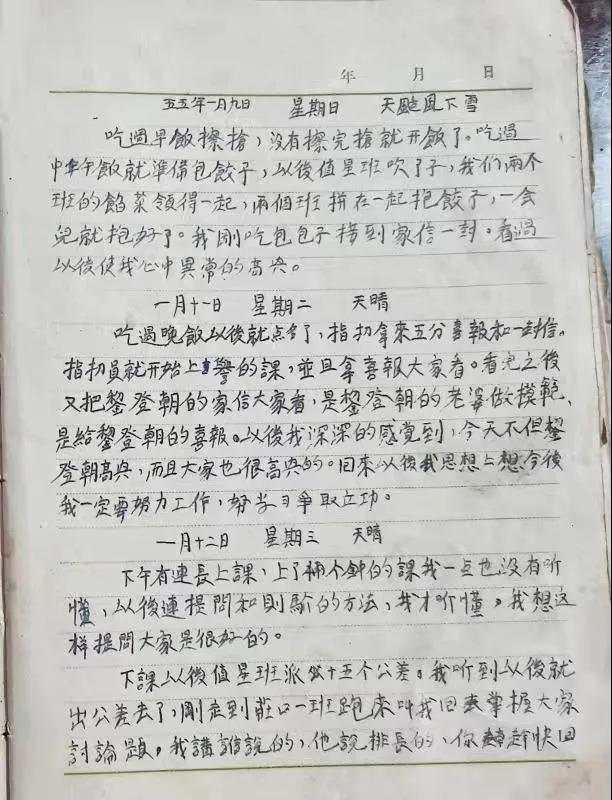 年 月 日
五五年一月九日 星期日 天颳風下雪
吃過早飯擦搶，没有擦完搶就开飯了。吃過
中午飯就準備包餃子，以後值星班吹了子，我们兩个
班的餡菜領得一起，兩個班拼在一起抱餃子，一会
兒就抱好了。我剛吃包包子接到家信一封。看過
以後使我心中異常的高兴。
一月十一日 星期二 天晴
吃過晚飯以後就点名了，指扐拿來五分喜報和一封信。
指扐員就开始上的課，並且拿喜報大家看。看完之後
又把登朝的家信大家看，是登朝的老婆做模範，
是給登朝的喜報。以後我深深的感覚到，今天不但
登朝高兴，而且大家也很高兴的。回來以後我思想上想今後
我一定要努力工作，努学习争取立功。
一月十二日 星期三 天晴
下午有連長上課，上了兩个钟的課我一点也没有听
懂，以後連提問和則驗的方法，我才听懂。我想这
样提問大家是很好的。
下課以後值星班派十五个公差。我听到以後就
出公差去了，剛走到莊口一班跑來叫我回去掌握大家
討論題。我講誰說的，他說排長的，你趕快回